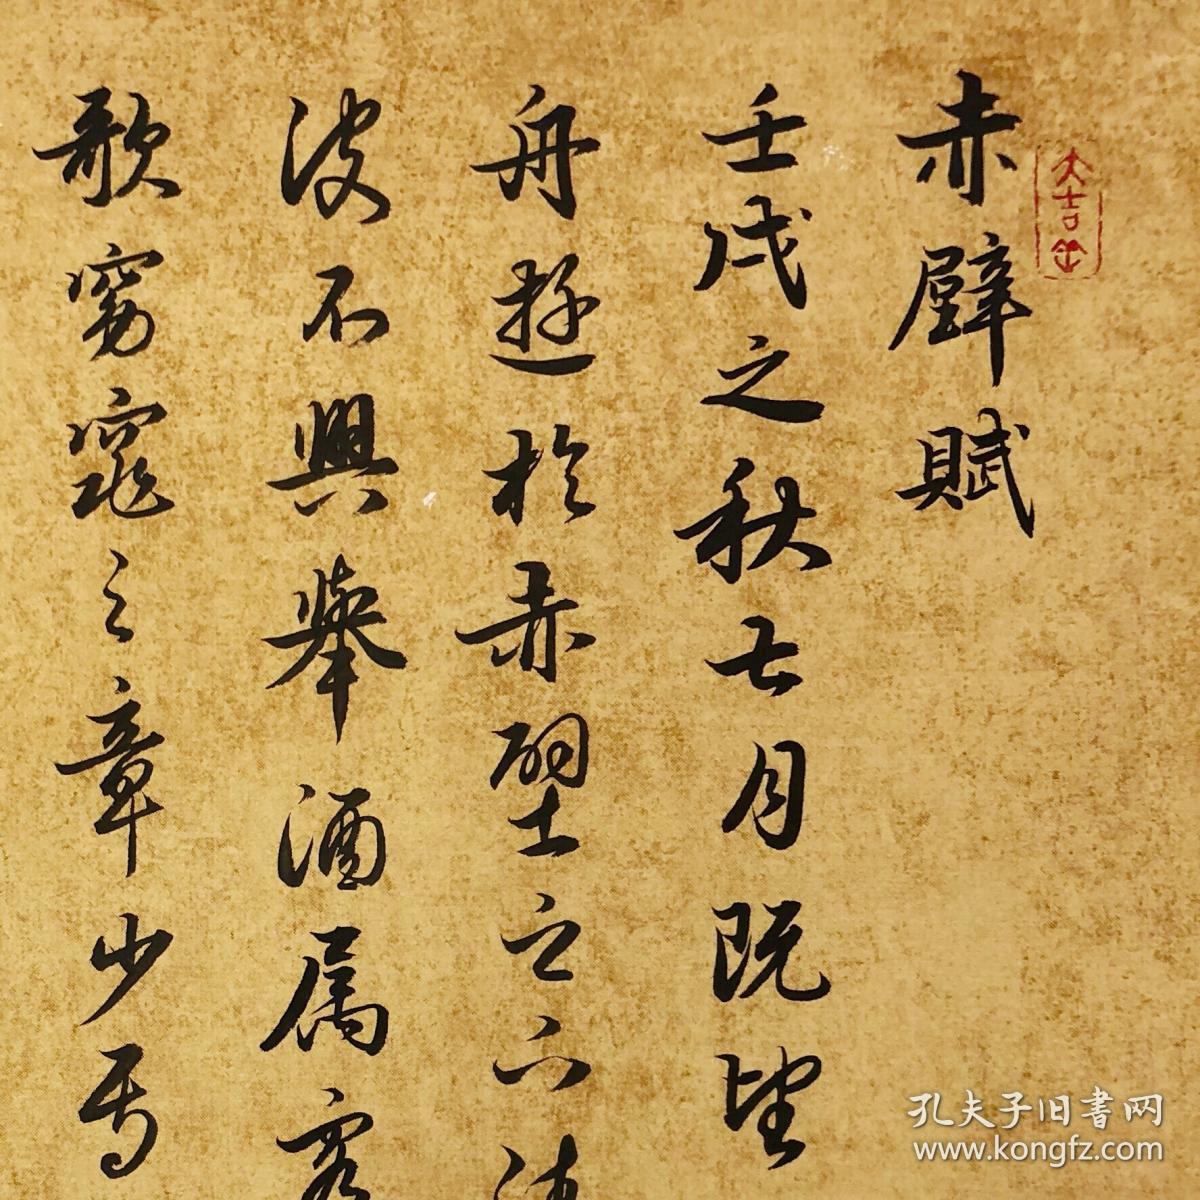 赤壁賦
壬戌之秋七月既望
舟遊於赤壁之下清
波不興舉酒属客
歌窈窕之章少焉
大吉
孔夫子旧書网
www.kongfz.com